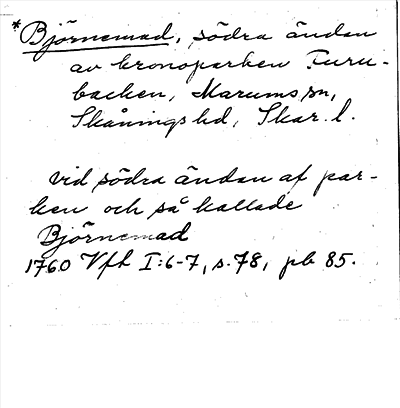 *Björnemad, södra ändan
av kronoparken Furu-
backen, Marums sn,
Skånings hd, Skar. l.
vid södra ändan af par-
ken och så kallade
Björnemad
1760 Vfh I:6-7, s. 78, pb 85.